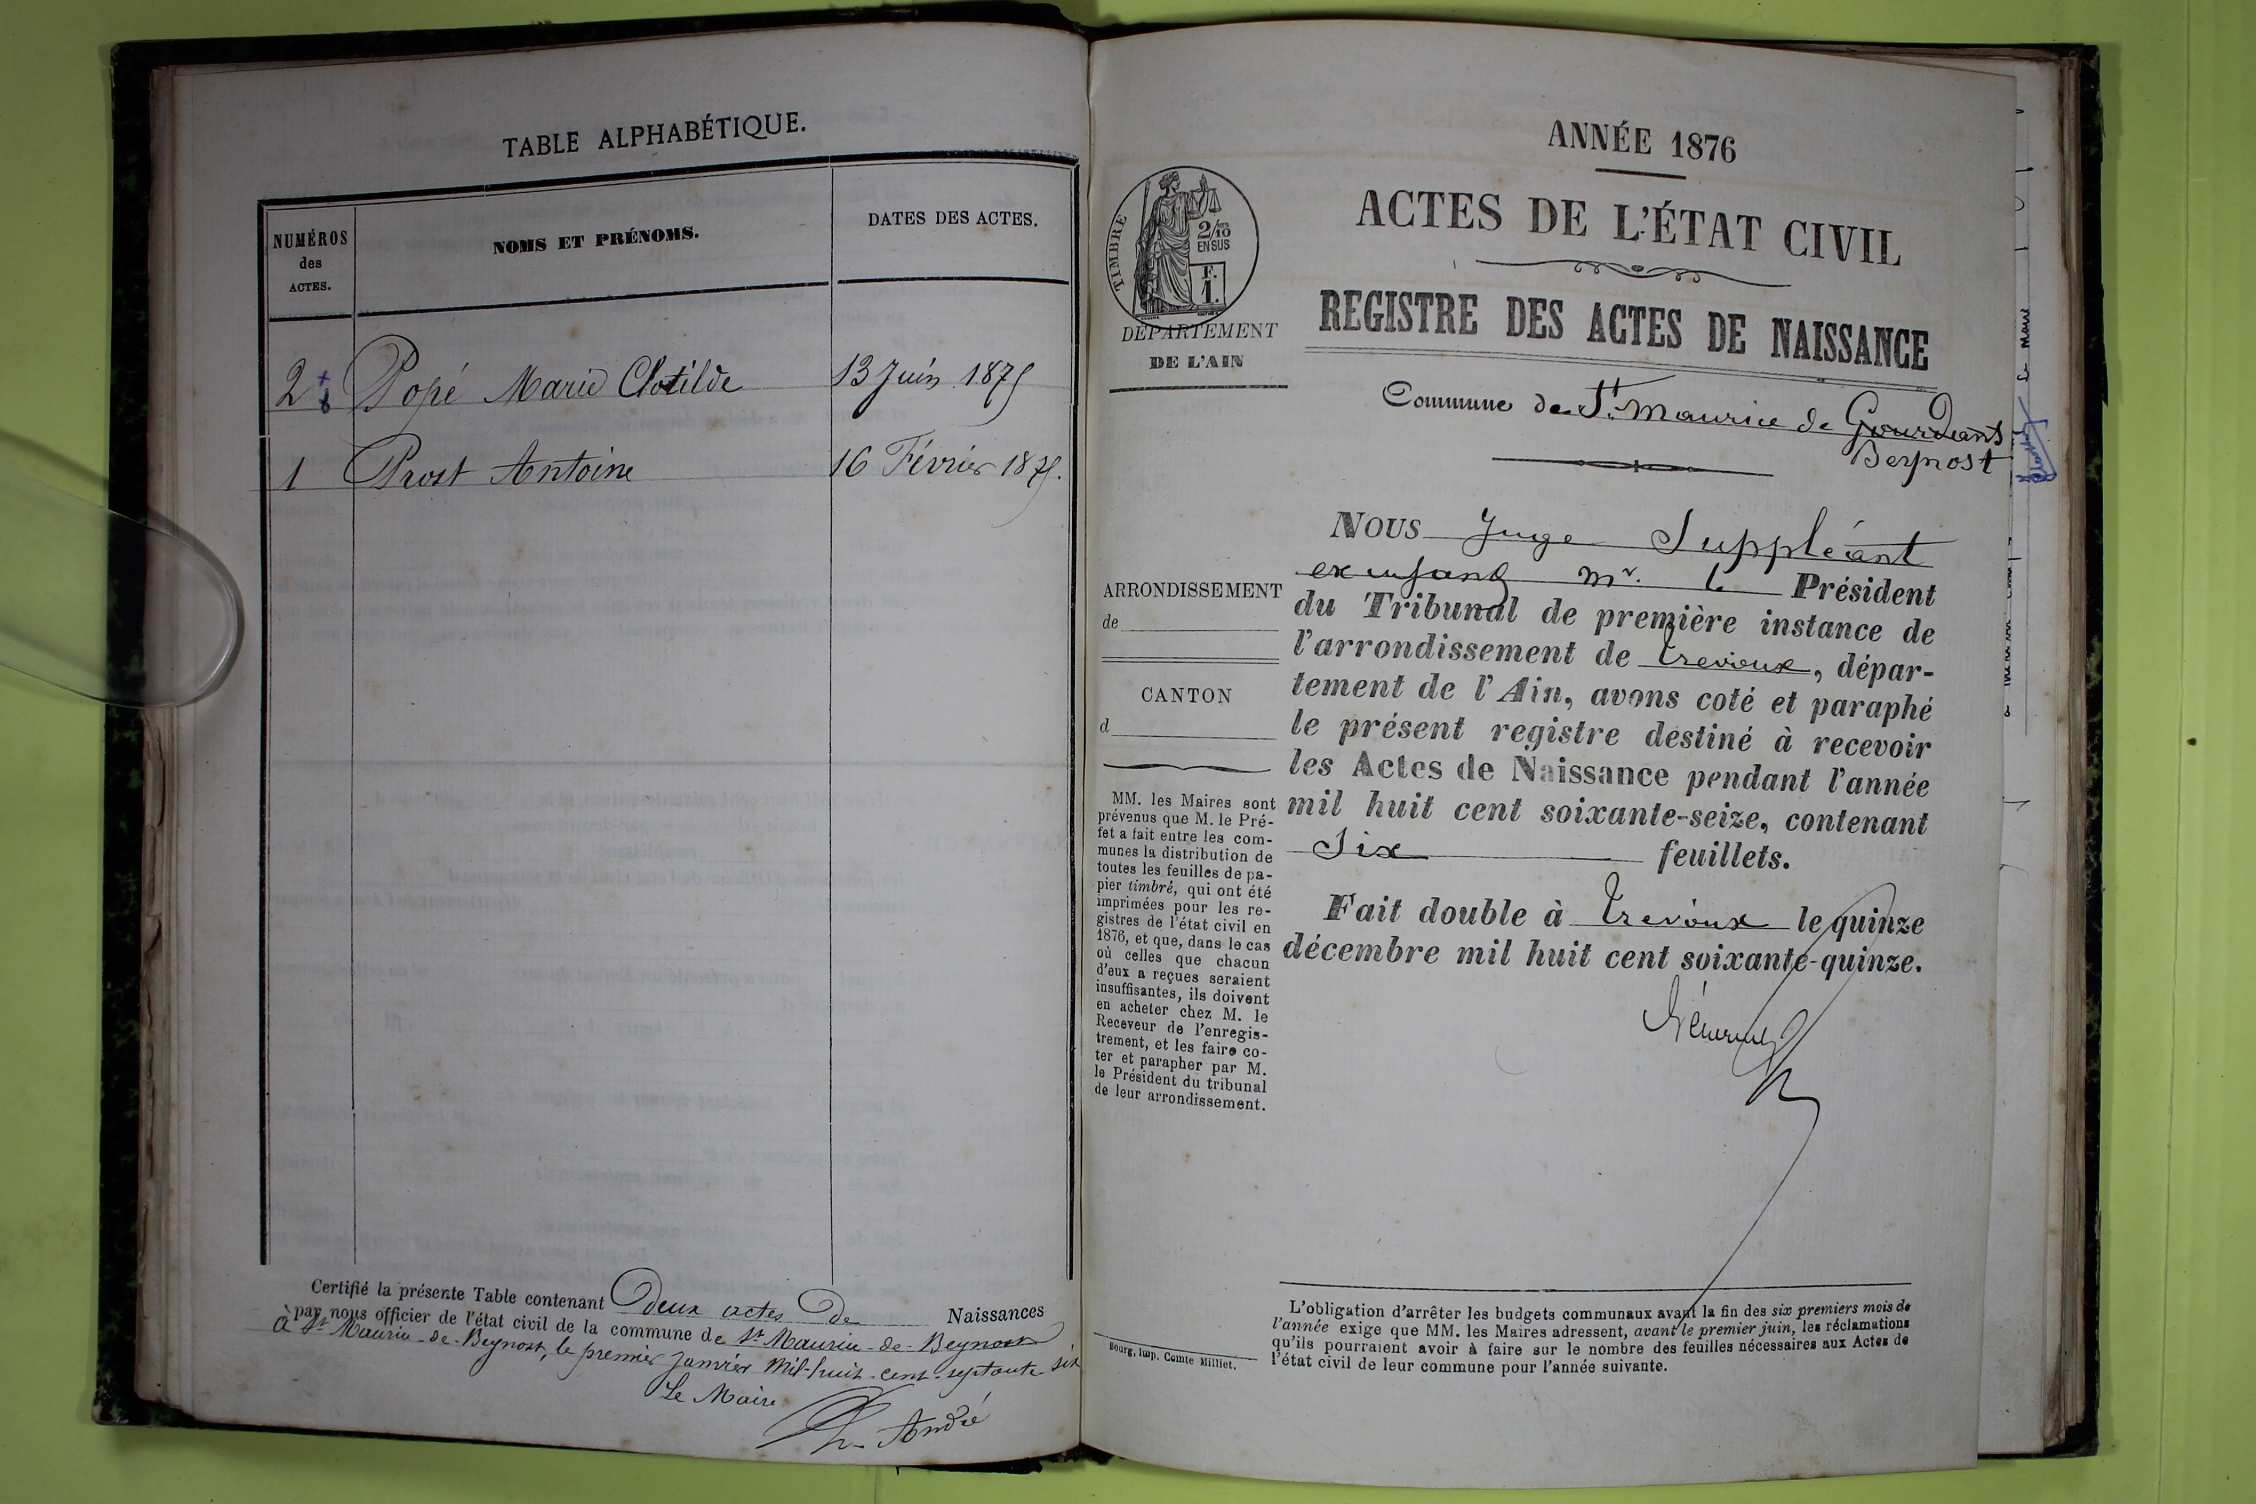 TABLE ALPHABÉTIQUE.
NUMÉROS
des
ACTES.
NOMS ET PRÉNOMS.
DATES DES ACTES.
2 Popé Marie Clotilde 13 Juin 1875
1 Prost Antoine 16 Février 1875.
Certifié la présente Table contenant Deux actes De Naissances
par nous officier de l'état civil de la commune de St Maurice-de-Beynost
à St Maurice-de-Beynost, le premier Janvier Mil-huit-cent-septante six
Le Maire
André
ANNÉE 1876
ACTES DE L'ÉTAT CIVIL
REGISTRE DES ACTES DE NAISSANCE
TIMBRE
2/10
EN SUS
F.
1.
DÉPARTEMENT
DE L'AIN
Commune de St. Maurice de Gourdans
Beynost
ARRONDISSEMENT
de
CANTON
d
MM. les Maires sont
prévenus que M. le Pré-
fet a fait entre les com-
munes la distribution de
toutes les feuilles de pa-
pier timbré, qui ont été
imprimées pour les re-
gistres de l'état civil en
1876, et que, dans le cas
où celles que chacun
d'eux a reçues seraient
insuffisantes, ils doivent
en acheter chez M. le
Receveur de l'enregis-
trement, et les faire co-
ter et parapher par M.
le Président du tribunal
de leur arrondissement.
NOUS Juge Suppléant
mr. le Président
du Tribunal de première instance de
l'arrondissement de Trevoux, dépar-
tement de l'Ain, avons coté et paraphé
le présent registre destiné à recevoir
les Actes de Naissance pendant l'année
mil huit cent soixante-seize, contenant
Six feuillets.
Fait double à Trevoux le quinze
décembre mil huit cent soixante-quinze.
L'obligation d'arrêter les budgets communaux avant la fin des six premiers mois de
l'année exige que MM. les Maires adressent, avant le premier juin, les réclamations
qu'ils pourraient avoir à faire sur le nombre des feuilles nécessaires aux Actes de
l'état civil de leur commune pour l'année suivante.
Bourg, Imp. Comte Milliet.